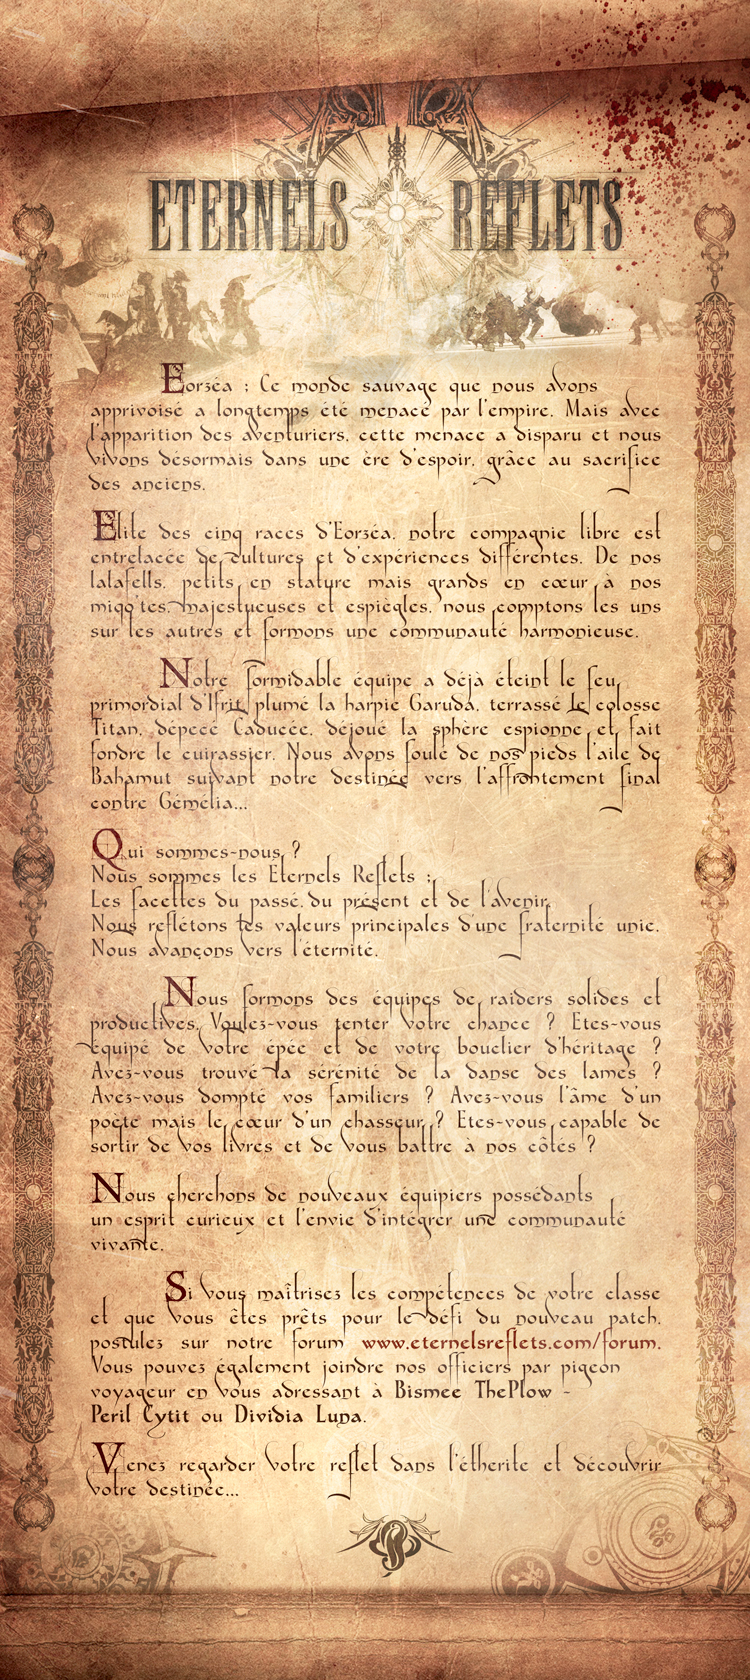 ETERNELS REFLETS
Eorzéa : Ce monde sauvage que nous avons
apprivoisé a longtemps été menacé par l'empire. Mais avec
l'apparition des aventuriers, cette menace a disparu et nous
vivons désormais dans une ère d'espoir, grâce au sacrifice
des anciens.
Elite des cinq races d'Eorzéa, notre compagnie libre est
entrelacée de cultures et d'expériences différentes. De nos
lalafells, petits en stature mais grands en cœur à nos
miqo'tes, majestueuses et espiègles, nous comptons les uns
sur les autres et formons une communauté harmonieuse.
Notre formidable équipe a déjà éteint le feu
primordial d'Ifrit, plumé la harpie Garuda, terrassé le colosse
Titan, dépecé Caducée, déjoué la sphère espionne et fait
fondre le cuirassier. Nous avons foulé de nos pieds l'aile de
Bahamut suivant notre destinée vers l'affrontement final
contre Gémélia...
Qui sommes-nous ?
Nous sommes les Eternels Reflets :
Les facettes du passé, du présent et de l'avenir.
Nous reflétons les valeurs principales d'une fraternité unie.
Nous avançons vers l'éternité.
Nous formons des équipes de raiders solides et
productives. Voulez-vous tenter votre chance ? Etes-vous
équipé de votre épée et de votre bouclier d'héritage ?
Avez-vous trouvé la sérénité de la danse des lames ?
Avez-vous dompté vos familiers ? Avez-vous l'âme d'un
poète mais le cœur d'un chasseur ? Etes-vous capable de
sortir de vos livres et de vous battre à nos côtés ?
Nous cherchons de nouveaux équipiers possédants
un esprit curieux et l'envie d'intégrer une communauté
vivante.
Si vous maîtrisez les compétences de votre classe
et que vous êtes prêts pour le défi du nouveau patch,
postulez sur notre forum www.eternelsreflets.com/forum.
Vous pouvez également joindre nos officiers par pigeon
voyageur en vous adressant à Bismee ThePlow -
Peril Cytit ou Dividia Luna.
Venez regarder votre reflet dans l'étherite et découvrir
votre destinée...